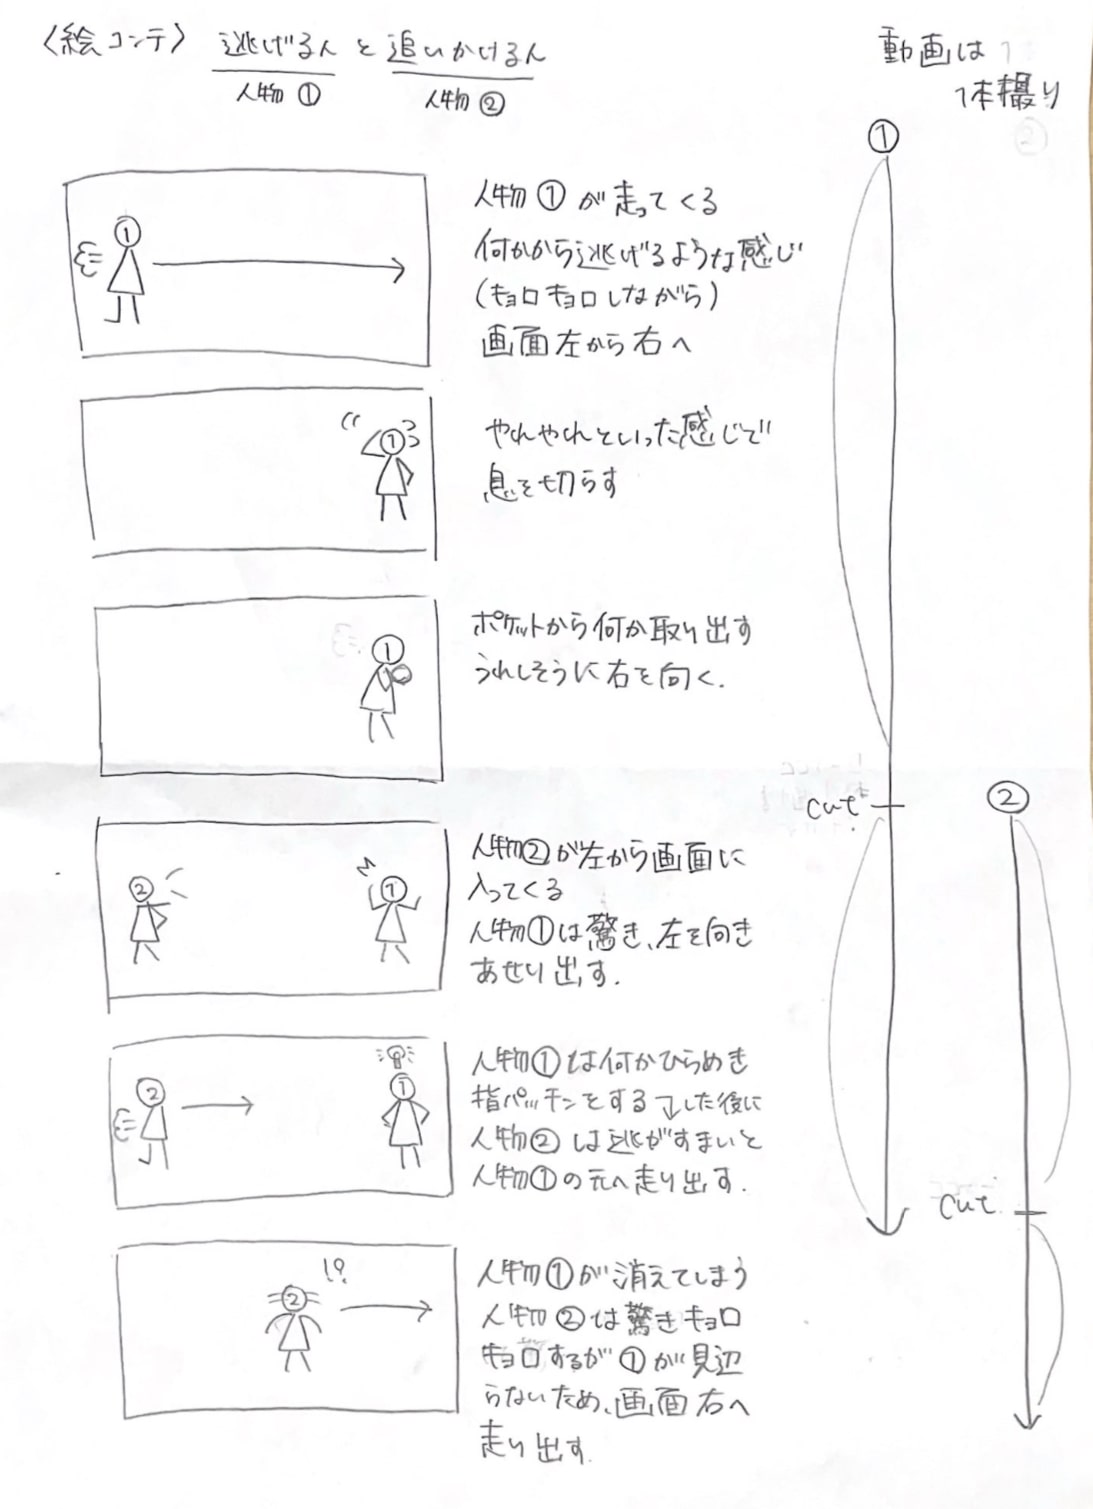 〈絵コンテ〉 逃げるんと追いかけるん
人物① 人物②
動画は
1本撮り
①
人物①が走ってくる
何かから逃げるような感じ
(キョロキョロしながら)
画面左から右へ
①
やれやれといった感じで
息を切らす
①
ポケットから何か取り出す
うれしそうに右を向く.
①
cut
②
人物②が左から画面に
入ってくる
人物①は驚き、左を向き
あせり出す.
② ①
人物①は何かひらめき
指パッチンをするした後に
人物②は逃がすまいと
人物①の元へ走り出す.
② ①
cut
人物①が消えてしまう
人物②は驚きキョロ
キョロするが①が見辺
らないため、画面右へ
走り出す.
② !?